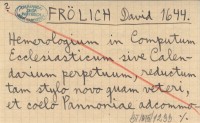 2
FRÖLICH David 1644.
Hemerologium in Computum
Ecclesiasticum sive Calen-
darium perpetuum, reductum
tam stylo novo quam veteri,
et coelo Pannoniae adcommo-
./.